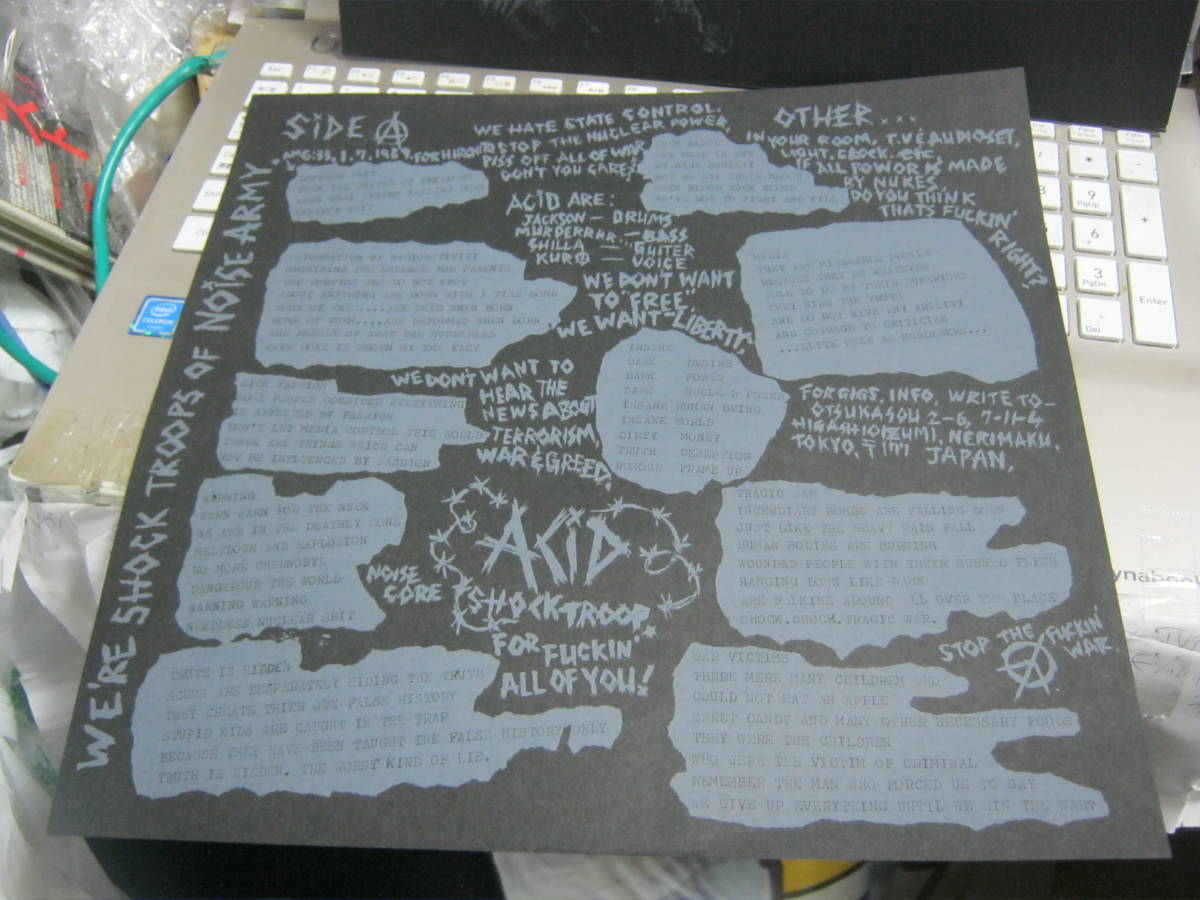 SIDE A
WE HATE STATE CONTROL.
TO STOP THE NUCLEAR POWER,
PISS OFF ALL OF WAR
DON'T YOU CARE?
OTHER...
IN YOUR ROOM, T.V & AUDIOSET,
LIGHT, CLOCK.. etc,
ALL POWOR IS MADE
BY NUKES
DO YOU THINK
THATS FUCKIN'
RIGHT?
ACID ARE:
JACKSON — DRUMS
MURDERRRR — BASS
SHILLA — GUITER
KURO — VOICE
DEFORMATION BY RADIOACTIVITY
ABOUT ANYTHING ARE BORN WITH A TIME BOMB
SOME OF THEM....ARE DEAD WHEN BORN
SOME OF THEM....ARE DEFORMED WHEN BORN
THE RESULT OF WHAT THE MURDERERS
HAVE DONE IS SHOWN BY THE FACT
WE DON'T WANT
TO "FREE",
WE WANT "LIBERTY,
MEDIA
THEY ARE MISERABLE PEOPLE
BECAUSE THEY DO WHATEVER
TOLD TO DO BY THEIR SUPERIORS
THEY HIDE THE TRUTH
AND DO NOT HAVE ANY ABILITY
AND COURAGE TO CRITICIZE
...ELITE AS MURDERERS...
SICK FASHION
SOME PEOPLE CONSIDER EVERYTHING
IS AFFECTED BY FASHION
DON'T LET MEDIA CONTROL THIS WORLD
THERE ARE THINGS WHICH CAN
NOT BE INFLUENCED BY FASHION
WE DON'T WANT TO
HEAR THE
NEWS ABOUT
TERRORISM,
WAR & GREED,
INSANE
DARK DESIRE
DARK POWER
DARK NUCLEAR POWER
INSANE HUMAN BEING
INSANE WORLD
DIRTY MONEY
TRUTH DECEPTION
RUMOUR FRAME UP
FOR GIGS, INFO, WRITE TO—
OTSUKASOU 2-6, 7-11-4
HIGASHIOIZUMI, NERIMAKU,
TOKYO, 〒177 JAPAN,
WE'RE SHOCK TROOPS OF NOISE ARMY.
WARNING
WARN WARN FOR THE NUCK
WE ARE IN THE DEATHLY ZONE
MELTDOWN AND EXPLOSION
NO MORE CHERNOBYL
DANGEROUS THE WORLD
WARNING WARNING
NEEDLESS NUCLEAR SHIT
NOISE
CORE
ACID
SHOCK TROOP
FOR FUCKIN'
ALL OF YOU!
TRAGIC WAR
INCENDIARY BOMBS ARE FALLING DOWN
JUST LIKE THE HEAVY RAIN FALL
HUMAN BODIES ARE BURNING
WOUNDED PEOPLE WITH THEIR BURNED FLESH
HANGING DOWN LIKE RAGS
ARE WALKING AROUND LL OVER THE PLACE
SHOCK.SHOCK.TRAGIC WAR.
STOP THE FUCKIN' WAR.
TRUTH IS HIDDEN
SCUMS ARE DESPERATELY HIDING THE TRUTH
THEY CREATE THIER OWN FALSE HISTORY
STUPID KIDS ARE CAUGHT IN THE TRAP
BECAUSE THEY HAVE BEEN TAUGHT THE FALSE HISTORY ONLY
TRUTH IS HIDDEN. THE WORST KIND OF LIE.
WAR VICTIMS
THERE MERE MANY CHILDREN WHO
COULD NOT EAT AN APPLE
SWEET CANDY AND MANY OTHER NECESSARY FOODS
THEY WERE THE CHILDREN
WHO WERE THE VICTIM OF CRIMINAL
REMEMBER THE MAN WHO FORCED US TO SAY
WE GIVE UP EVERYTHING UNTIL WE WIN THE WAR?
intel
CELERON
9
PgUp
6
3
PgDn
Del
Enter